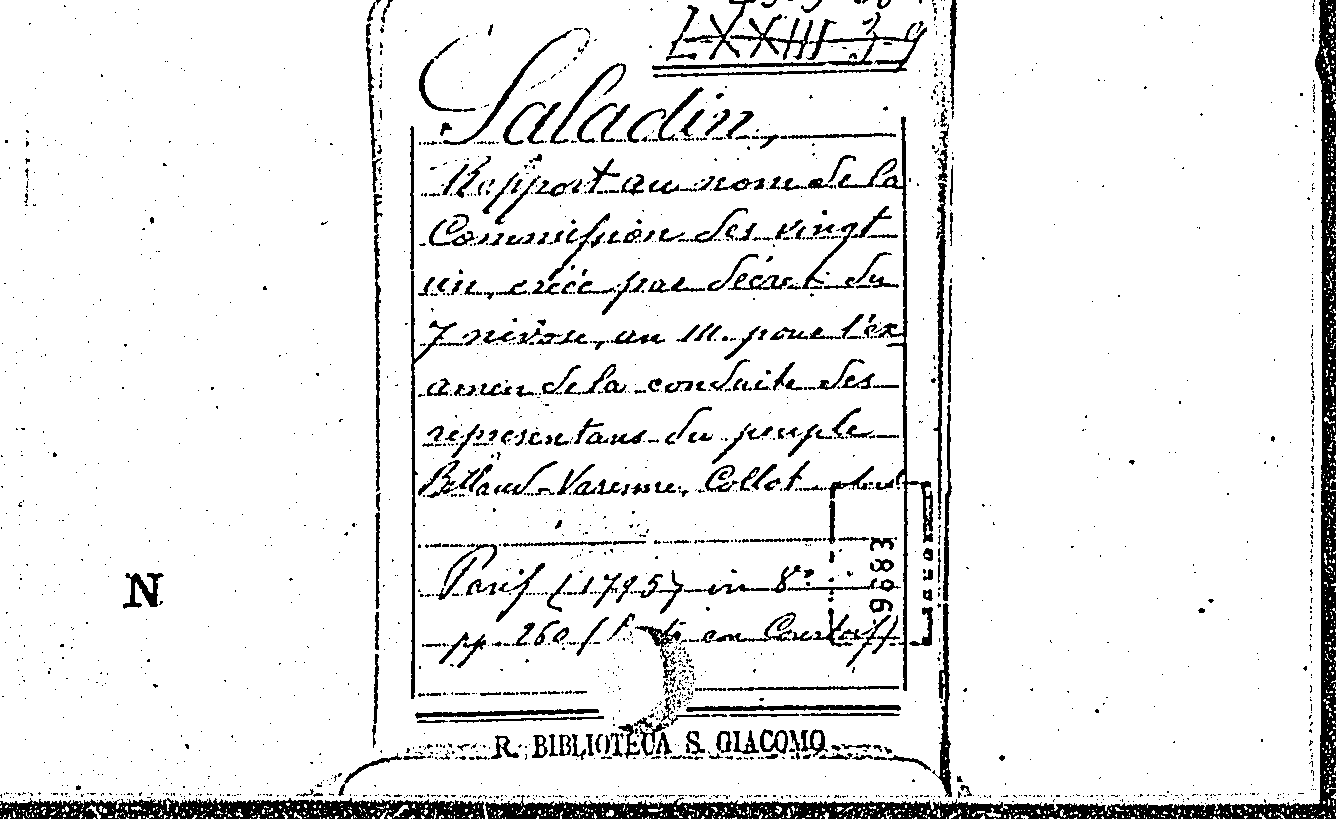 LXXIII 39
Saladin,
Rapport au nom de la
Commission des vingt
un, créée par décret du
7 nivose, an III. pour l'ex
amen de la conduite des
representans du peuple
Billaud-Varenne, Collot
Paris (1795) in 8º
9683
pp. 260 ( con Courtois)
N
R. BIBLIOTECA S. GIACOMO